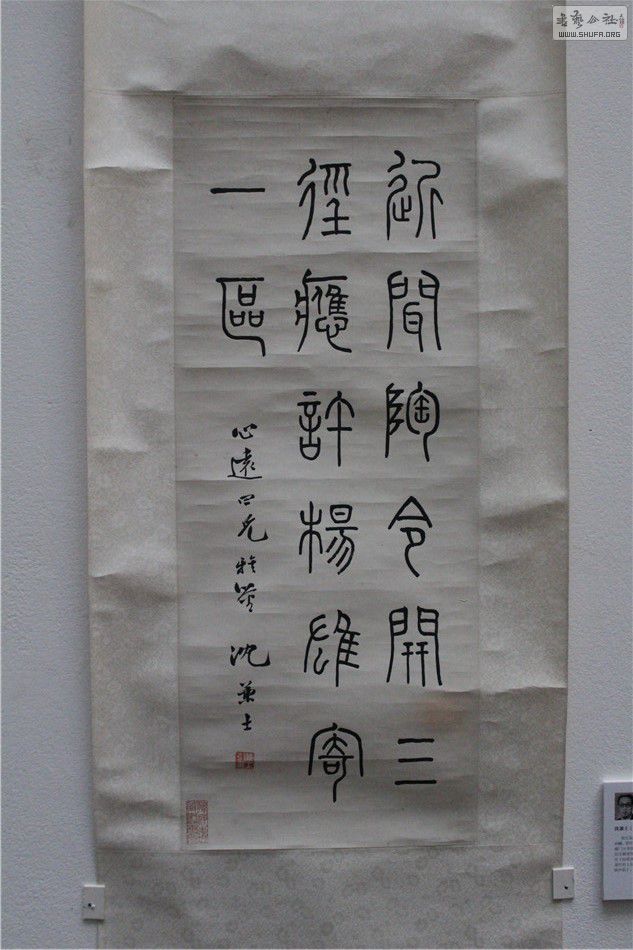 近聞陶令開三
徑應許楊雄寄
一區
心遠四兄雅 沈兼士
書藝公社
WWW.SHUFA.ORG